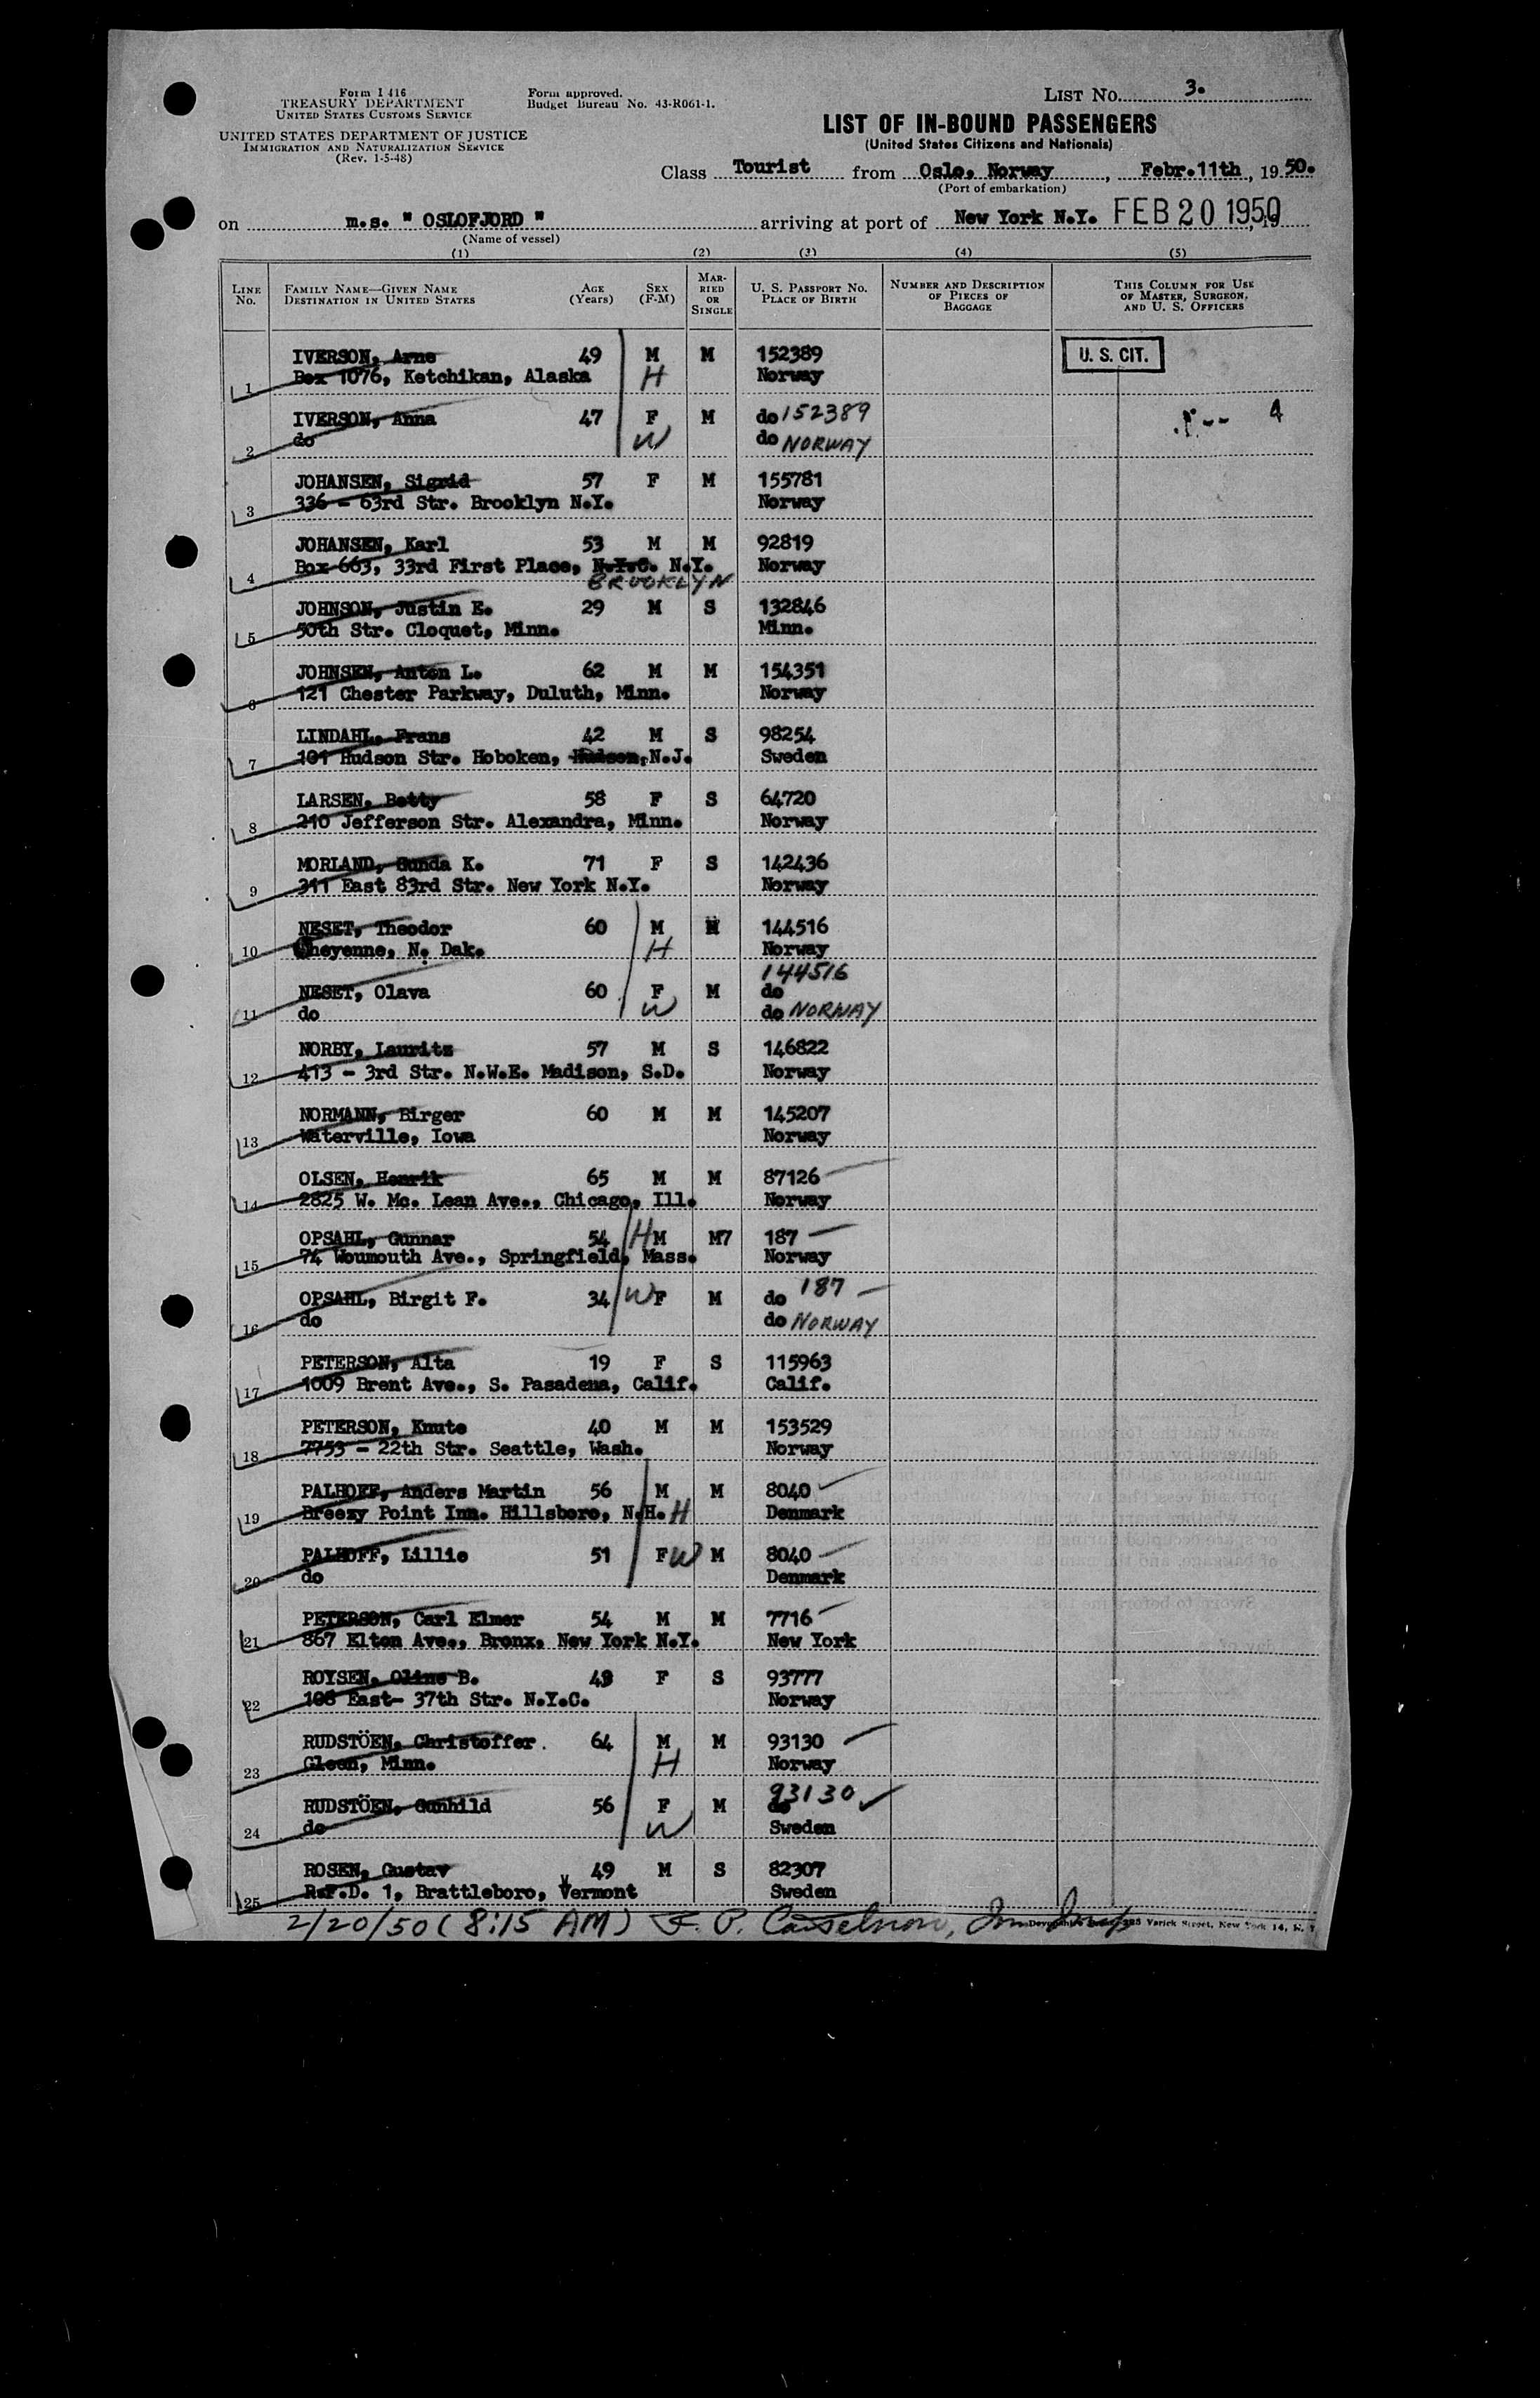 Form I 416
TREASURY DEPARTMENT
UNITED STATES CUSTOMS SERVICE
UNITED STATES DEPARTMENT OF JUSTICE
IMMIGRATION AND NATURALIZATION SERVICE
(Rev. 1-5-48)
Form approved.
Budget Bureau No. 43-R061-1.
LIST NO. 3.
LIST OF IN-BOUND PASSENGERS
(United States Citizens and Nationals)
Class Tourist from Oslo, Norway, Febr.11th, 1950.
(Port of embarkation)
on m.s. " OSLOFJORD " arriving at port of New York N.Y. FEB 20 1950, 19
(Name of vessel)
(1) (2) (3) (4) (5)
LINE NO. FAMILY NAME—GIVEN NAME DESTINATION IN UNITED STATES AGE (Years) SEX (F-M) MARRIED OR SINGLE U. S. PASSPORT NO. PLACE OF BIRTH NUMBER AND DESCRIPTION OF PIECES OF BAGGAGE THIS COLUMN FOR USE OF MASTER, SURGEON, AND U. S. OFFICERS
IVERSON, Arne 49 M M 152389 U. S. CIT.
1 Box 1076, Ketchikan, Alaska H Norway
IVERSON, Anna 47 F M do 152389 4
2 do W do NORWAY
JOHANSEN, Sigrid 57 F M 155781
3 336 - 63rd Str. Brooklyn N.Y. Norway
JOHANSEN, Karl 53 M M 92819
4 Box 663, 33rd First Place, N.Y.C. N.Y. Norway
BROOKLYN
JOHNSON, Justin E. 29 M S 132846
5 50th Str. Cloquet, Minn. Minn.
JOHNSEN, Anton L. 62 M M 154351
6 121 Chester Parkway, Duluth, Minn. Norway
LINDAHL, Frans 42 M S 98254
7 101 Hudson Str. Hoboken, Hudson, N.J. Sweden
LARSEN, Betty 58 F S 64720
8 210 Jefferson Str. Alexandra, Minn. Norway
MORLAND, Gunda K. 71 F S 142436
9 311 East 83rd Str. New York N.Y. Norway
NESET, Theodor 60 M M 144516
10 Cheyenne, N. Dak. H Norway
144516
NESET, Olava 60 F M do
11 do W do NORWAY
NORBY, Lauritz 57 M S 146822
12 413 - 3rd Str. N.W.E. Madison, S.D. Norway
NORMANN, Birger 60 M M 145207
13 Waterville, Iowa Norway
OLSEN, Henrik 65 M M 87126
14 2825 W. Mc. Lean Ave., Chicago, Ill. Norway
OPSAHL, Gunnar 54 H M M7 187
15 74 Woumouth Ave., Springfield, Mass. Norway
OPSAHL, Birgit F. 34 W F M do 187
16 do do NORWAY
PETERSON, Alta 19 F S 115963
17 1009 Brent Ave., S. Pasadena, Calif. Calif.
PETERSON, Knute 40 M M 153529
18 7753 - 22th Str. Seattle, Wash. Norway
PALHOFF, Anders Martin 56 M M 8040
19 Breezy Point Inn. Hillsboro, N.H. H Denmark
PALHOFF, Lillie 51 F W M 8040
20 do Denmark
PETERSON, Carl Elmer 54 M M 7716
21 867 Elton Ave., Bronx, New York N.Y. New York
ROYSEN, Oline B. 49 F S 93777
22 108 East- 37th Str. N.Y.C. Norway
RUDSTÖEN, Christoffer. 64 M M 93130
23 Gleen, Minn. H Norway
93130
RUDSTÖEN, Gunhild 56 F M do
24 do W Sweden
ROSEN, Gustav 49 M S 82307
25 R.F.D. 1, Brattleboro, Vermont Sweden
2/20/50 (8:15 AM) F. P.
Varick Street, New York 14, N. Y